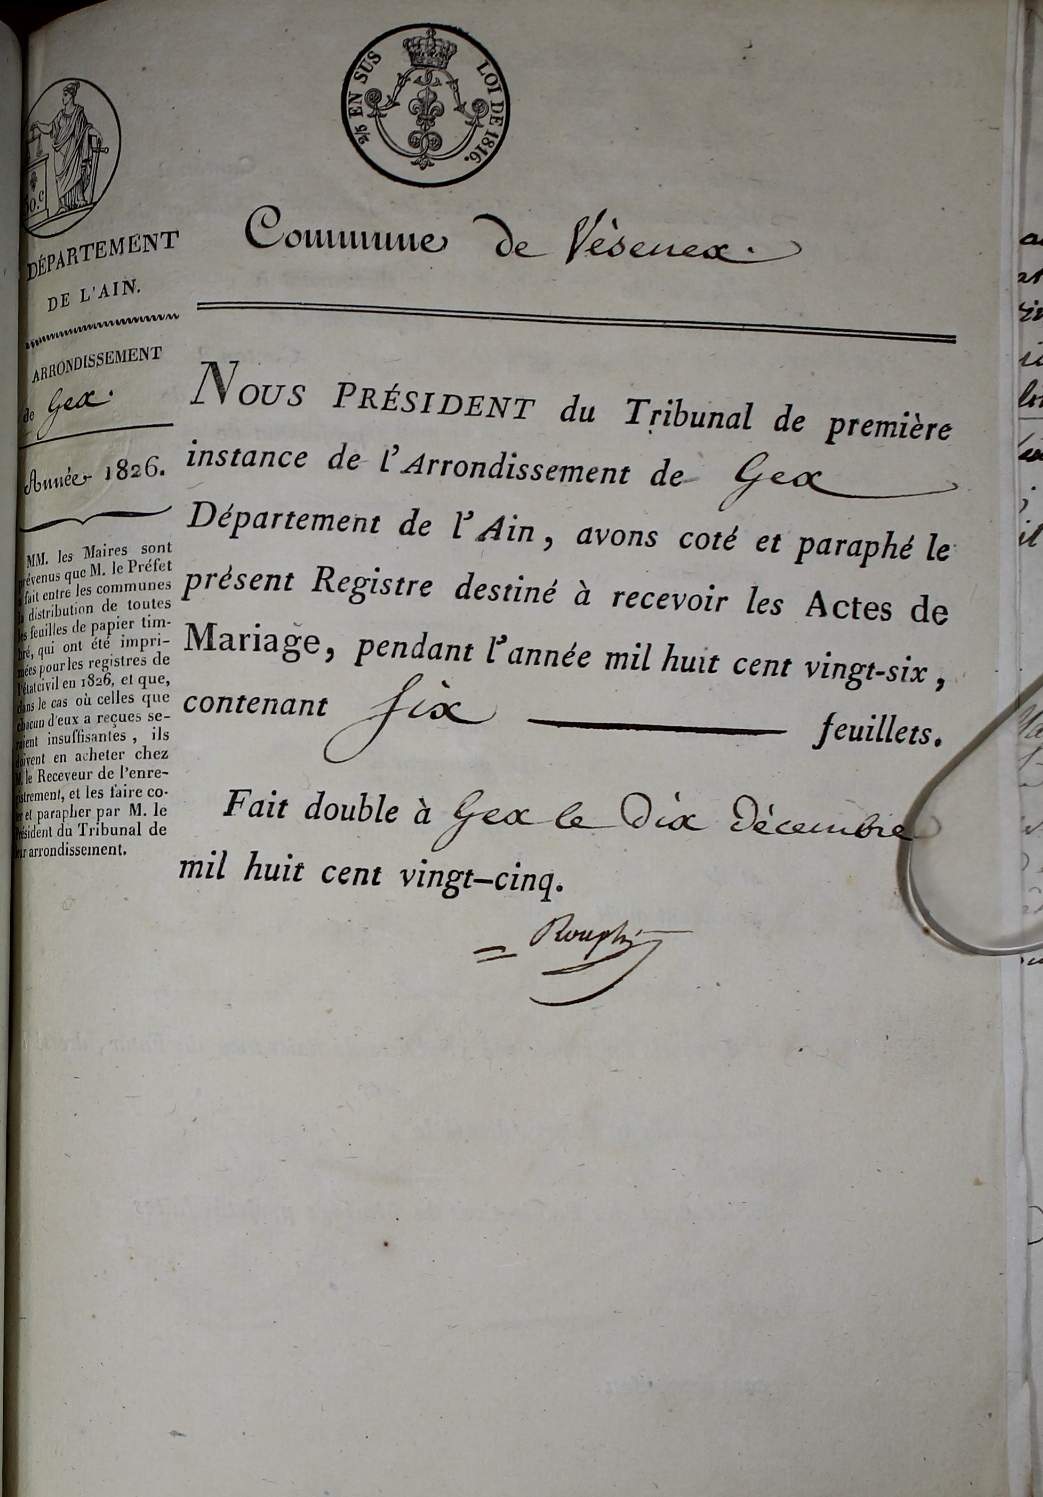 2/5 EN SUS LOI DE 1816.
50.c
DÉPARTEMENT
DE L'AIN.
ARRONDISSEMENT
de Gex.
Année 1826.
MM. les Maires sont
prévenus que M. le Préfet
a fait entre les communes
la distribution de toutes
les feuilles de papier tim-
bré, qui ont été impri-
mées pour les registres de
l'état civil en 1826, et que,
dans le cas où celles que
chacun d'eux a reçues se-
raient insuffisantes, ils
doivent en acheter chez
M. le Receveur de l'enre-
gistrement, et les faire co-
ter et parapher par M. le
Président du Tribunal de
leur arrondissement.
Commune de Vèsenex.
NOUS PRÉSIDENT du Tribunal de première
instance de l'Arrondissement de Gex
Département de l'Ain, avons coté et paraphé le
présent Registre destiné à recevoir les Actes de
Mariage, pendant l'année mil huit cent vingt-six,
contenant six feuillets.
Fait double à Gex le Dix Décembre
mil huit cent vingt-cinq.